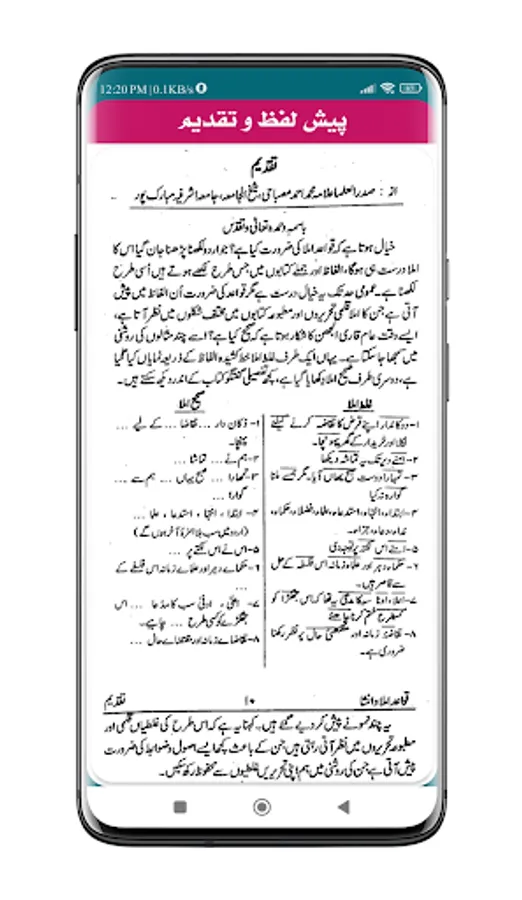 12:20 PM | 0.1KB/s
85
پیش لفظ و تقدیم
تقدیم
از : صدر العلما علامہ محمد احمد مصباحی، شیخ الجامعہ، جامعہ اشرفیہ مبارک پور
باسمہ وحمدہ تعالیٰ وتقدس
خیال ہوتا ہے کہ قواعد املا کی ضرورت کیا ہے؟ جو اردو لکھنا پڑھنا جان گیا اس کا
املا درست ہی ہوگا، الفاظ اور جملے کتابوں میں جس طرح لکھے ہوتے ہیں اُسی طرح
لکھنا ہے۔ عمومی حد تک یہ خیال درست ہے مگر قواعد کی ضرورت اُن الفاظ میں پیش
آتی ہے جن کا املا قلمی تحریروں اور مطبوعہ کتابوں میں مختلف شکلوں میں نظر آتا ہے،
ایسے وقت عام قاری الجھن کا شکار ہوتا ہے کہ صحیح کیا ہے؟ اسے چند مثالوں کی روشنی
میں سمجھا جا سکتا ہے۔ یہاں ایک طرف غلط املا خط کشیدہ الفاظ کے ذریعہ نمایاں کیا گیا
ہے، دوسری طرف صحیح املا دکھایا گیا ہے، کچھ تفصیلی گفتگو کتاب کے اندر دیکھ سکتے ہیں۔
غلط املا
۱- دوکاندار اپنے قرض کا تقاضہ کرنے کیلئے
نکلا اور خریدار کے گھر پہونچا۔
۲- ہمنے دیر تک یہ تماشہ دیکھا
۳- تمہارا دوست صبح یہاں آیا۔ مگر ہمسے ملنا
گوارہ نہ کیا
۴- ابتداء، انتہاء، استدعاء، علماء، فضلاء، حکماء،
۵- اسنے اس نکتہ پر توجہ دی
۶- حکماء دہر اور علماء زمانہ اس فلسفہ کے حل
سے قاصر ہیں۔
۸- تقاضۂ زمانہ اور مقتضیٰ حال پر نظر رکھنا
ضروری ہے۔
صحیح املا
۱- دُکان دار ... تقاضا ... کے لیے ...
پہنچا۔
۲- ہم نے ... تماشا ...
۳- تمھارا ... صبح یہاں ... ہم سے ...
گوارا ...
۴- ابتدا، انتہا، استدعا، علما ...
(اردو میں سب بلا ہمزۂ آخر ہوں گے)
۵- اس نے اس نکتے پر ...
۶- حکماے دہر اور علماے زمانہ اس فلسفے کے
...
۷- اعلیٰ، ادنیٰ سب کا مدعا ... اس
جھگڑے کو کسی طرح ... چاہیے۔
۸- تقاضاے زمانہ اور مقتضاے حال ...
قواعد املا و انشا
۱۰
تقدیم
یہ چند نمونے پیش کر دیے گئے ہیں۔ کہنا یہ ہے کہ اس طرح کی غلطیاں قلمی اور
مطبوعہ تحریروں میں نظر آتی رہتی ہیں جن کے باعث کچھ ایسے اصول و ضوابط کی ضرورت
پیش آتی ہے جن کی روشنی میں ہم اپنی تحریریں غلطیوں سے محفوظ رکھ سکیں۔